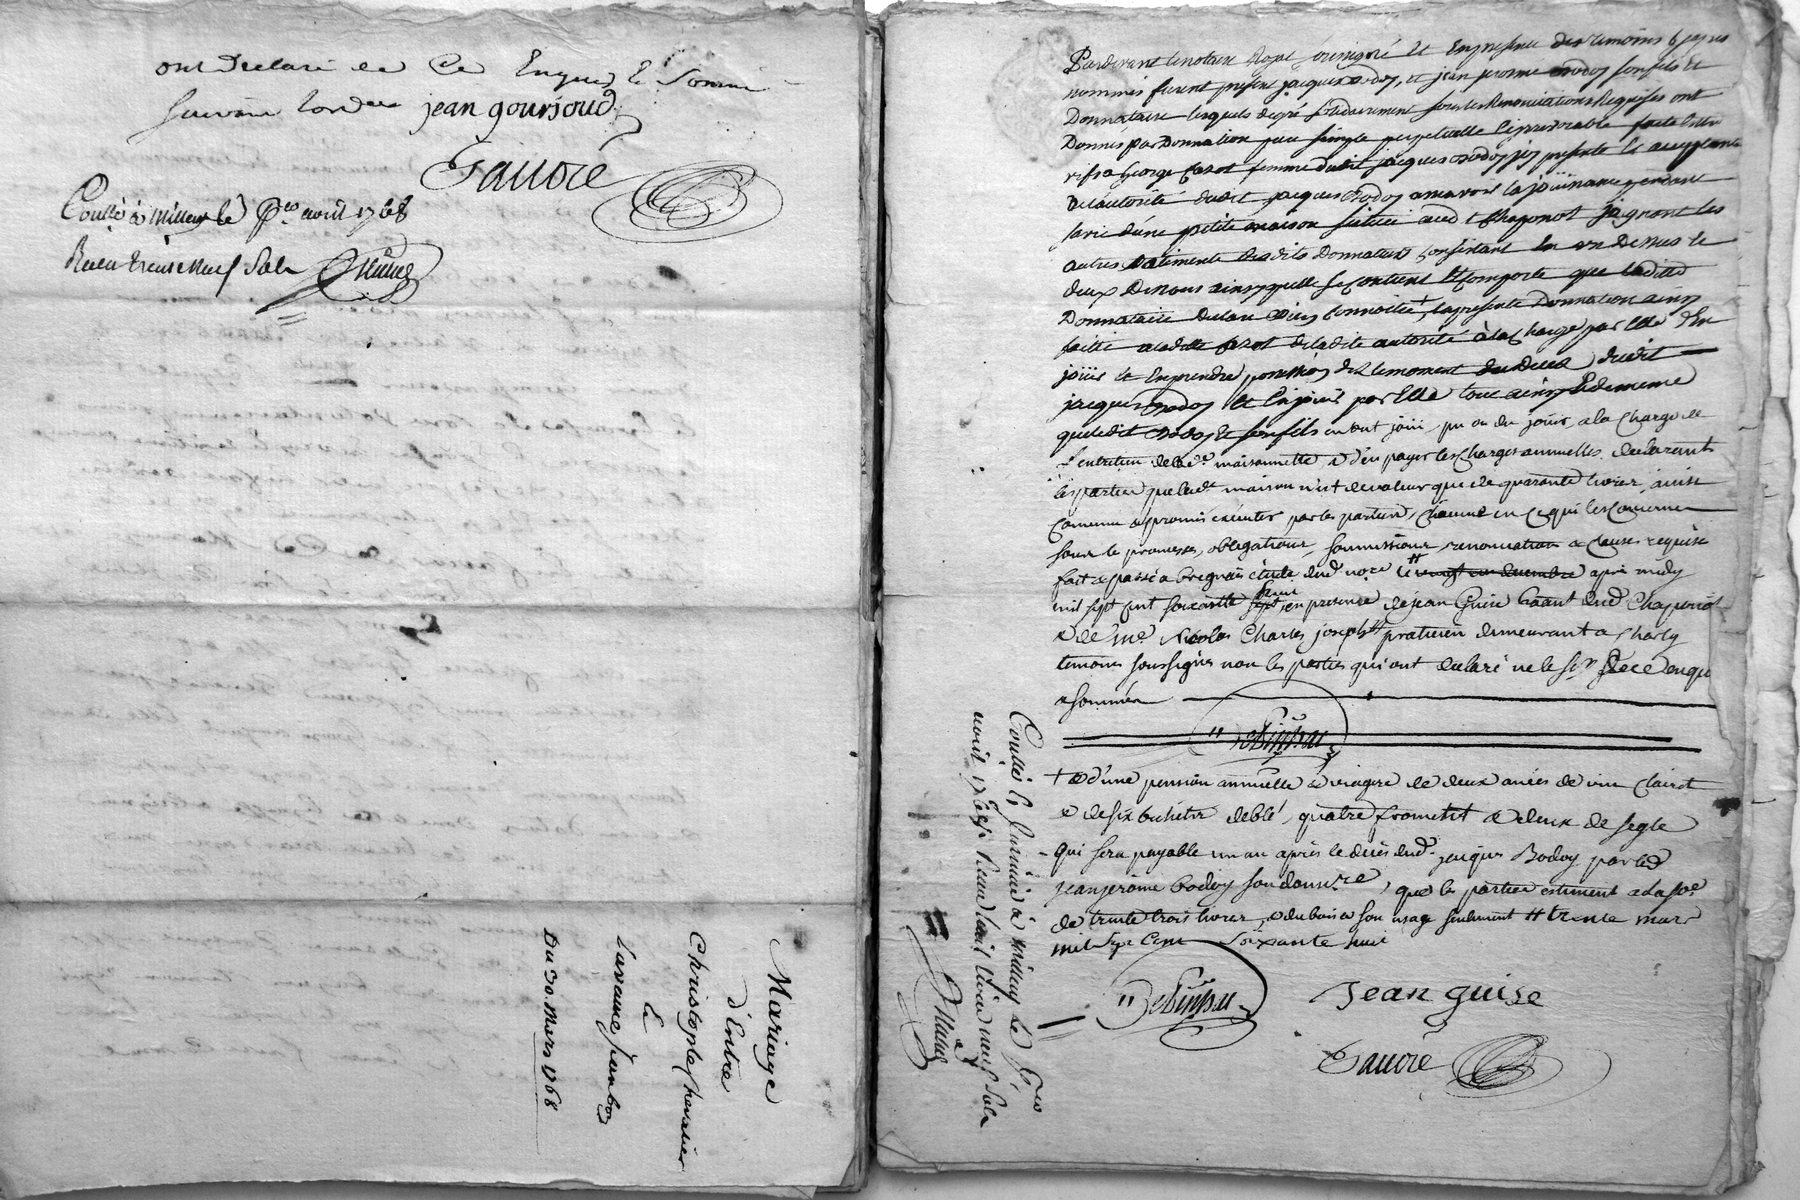 ont Declaré de Ce Enquis & Sommé
suivant l'ord.ce jean gourjoud
Fauvre
Conllé à Millery le P.er avril 1768
Recu treize neuf Sols
Mariage
d'Entre
Christophe Chevalier
&
Du 30 Mars 1768
Pardevant le notaire Royal soussigné Et En presence des temoins bas
nommés furent presens jacques Bodoy, et jean jerome Bodoy son fils Et
Donnataire lesquels degré solidairement sous les Renonciations Requises ont
Donnés par Donnation pure simple perpetuelle Eirrevocable faite entre
vifs a George Cazot femme dudit jacques Bodoy jcy presente Et acceptante
De l'autorité dudit jacques Bodoy a mavoir la jouissance pendant
sa vie d'une petite maison scituée aud t Chaponot joignant les
autres Batiments desdits Donnateurs consistant En un Dessus Et
Deux Dessous ainsy quelle se contient Et Comporte que ladite
Donnataire Declare bien connoitre + la presente Donnation ainsy
faitte a ladite Cazot de ladite autorité à la Charge par Elle d'En
jouir Et Enprendre possession des le moment du Deces dudit
jacques Bodoy Et Enjouir par Elle tout ainsy Et de meme
que ledit Bodoy Et son fils en ont joüi, pu ou du joüir a la charge de
l'entretien de lad.e maisonnette & d'en payer les Charges annuelles, declarants
les parties que lad.e maison n'est de valeur que de quarante livres, ainsi
Convenu & promis executer par les parties, Chacune en Ce qui les Concerne
sous les promesses, obligations, soumissions, renonciations & Clauses requises
fait & passé a brignais étude dud. no.re le # vingt un decembre après midy
mil sept cent soixante sept huit, en presence de jean Guise habitant dud. Chaponot
& de M.e Nicolas Charles joseph # praticien demeurant a Charly
temoins soussignés non les parties qui ont declaré ne le scavoir de ce enquis
& sommés
+ & d'une pension annuelle & viagere de deux anées de vin Clairet
& de six bichets de blé, quatre froment & deux de segle
qui sera payable un an après le décès dud. jacques Bodoy par led.
jean jerôme bodoy son donn.re, que les parties estiment a la so.e
de trente trois livres, & du bois a son usage seulement # trente mars
mil Sept Cent Soixante huit
Jean guise
Fauvre
Conllé & Insinué à Millery le P.er
avril 1768. Recu trois livres neuf Sols